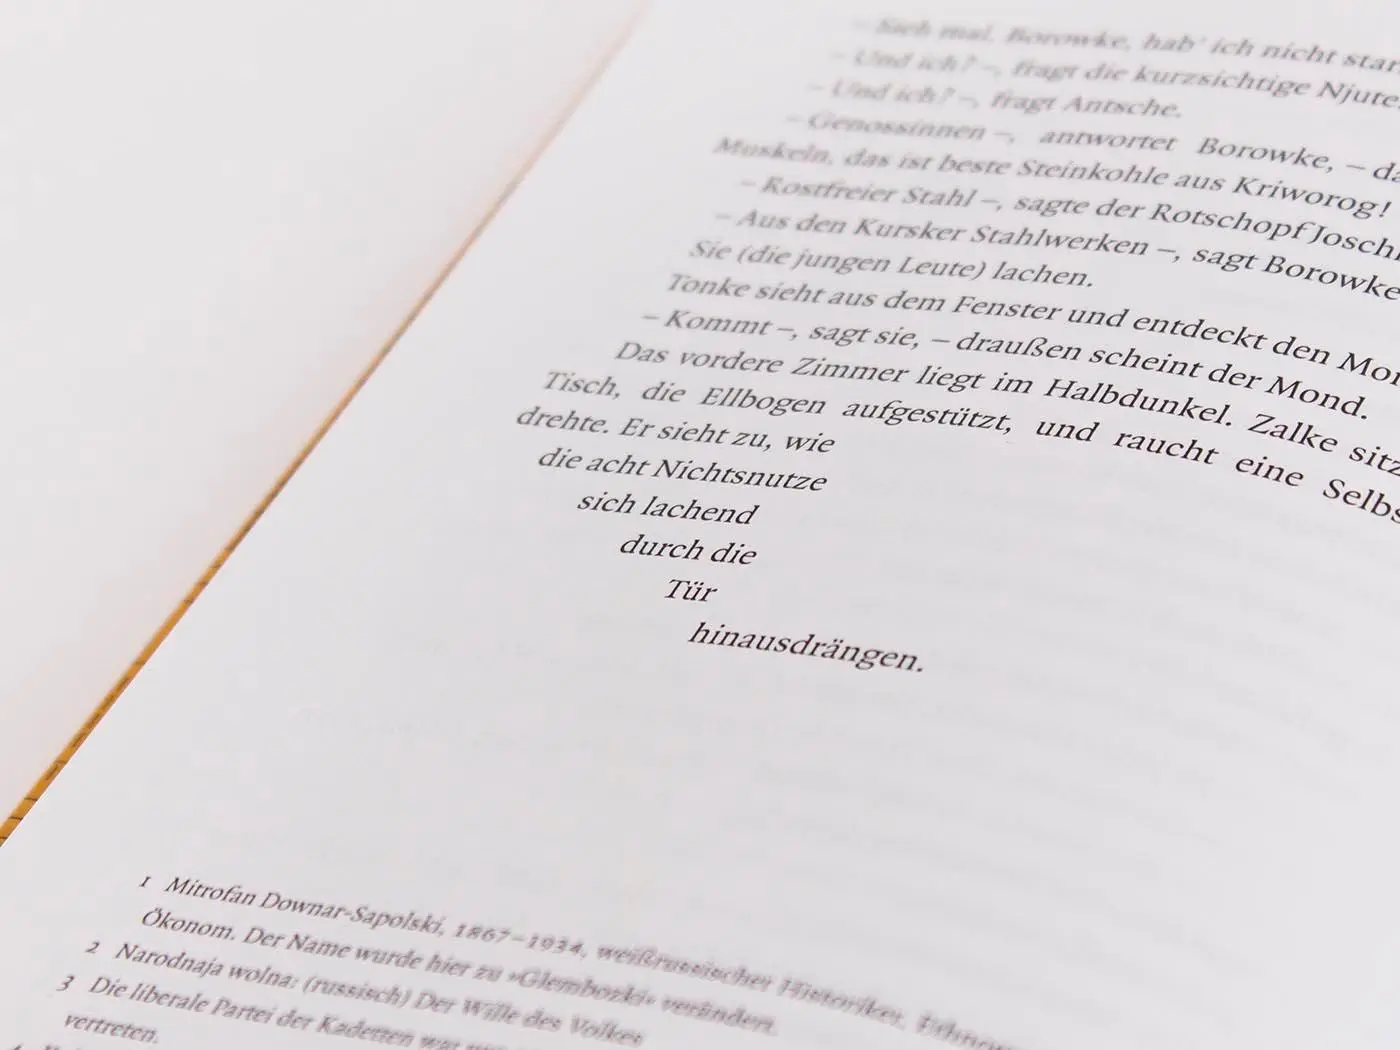 – Sieh mal, Borowke, hab' ich nicht
– Und ich? –, fragt die kurzsichtige
– Und ich? –, fragt Antsche.
– Genossinnen –, antwortet Borowke, –
Muskeln, das ist beste Steinkohle aus Kriworog!
– Rostfreier Stahl –, sagte der Rotschopf
– Aus den Kursker Stahlwerken –, sagt Borowke
Sie (die jungen Leute) lachen.
Tonke sieht aus dem Fenster und entdeckt den
– Kommt –, sagt sie, – draußen scheint der Mond.
Das vordere Zimmer liegt im Halbdunkel. Zalke
Tisch, die Ellbogen aufgestützt, und raucht eine
drehte. Er sieht zu, wie
die acht Nichtsnutze
sich lachend
durch die
Tür
hinausdrängen.
1 Mitrofan Downar-Sapolski, 1867–1934, weißrussischer Historiker,
Ökonom. Der Name wurde hier zu »Glembozki« verändert.
2 Narodnaja wolna: (russisch) Der Wille des Volkes
3 Die liberale Partei der Kadetten war
vertreten.
4